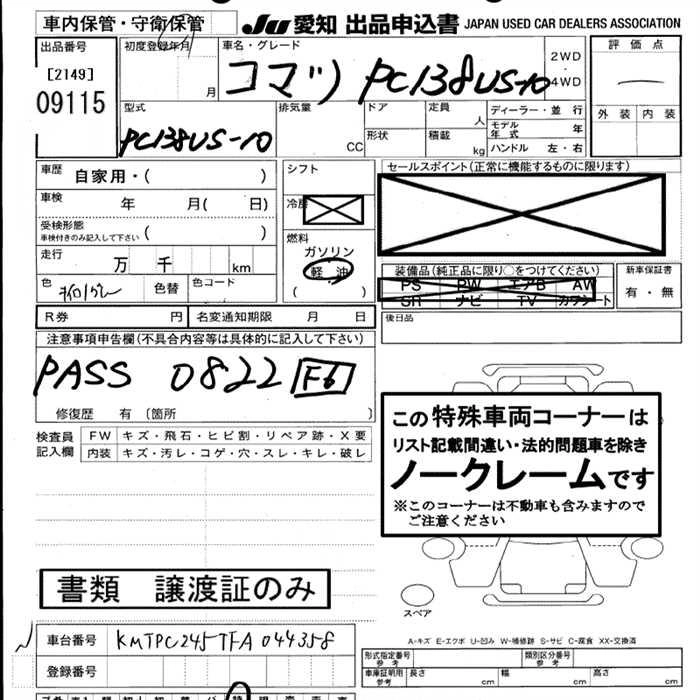 車内保管・守衛保管 JU 愛知 出品申込書 JAPAN USED CAR DEALERS ASSOCIATION
出品番号 初度登録年月 車名・グレード 評価点
[2149] 月 コマツ PC138US-10 2WD
09115 4WD
型式 排気量 ドア 定員 ディーラー・並 行 外装 内装
人 モデル年式 年
PC138US-10 CC 形状 積載 kg ハンドル 左・右
車歴 自家用・( ) シフト セールスポイント(正常に機能するものに限ります)
車検 年 月( 日)
受検形態 車検付きのみ記入して下さい ( ) 燃料
走行 万 千 km ガソリン
軽油
( )
装備品(純正品に限り○をつけてください) 新車保証書
PS PW エアB AW 有・無
SR ナビ TV カワシート
色 色替 色コード
R券 円 名変通知期限 月 日 後日品
注意事項申告欄(不具合内容等は具体的に記入して下さい)
PASS 0822 F6
修復歴 有 〔箇所 〕
検査員 FW キズ・飛石・ヒビ割・リペア跡・X要
記入欄 内装 キズ・汚レ・コゲ・穴・スレ・キレ・破レ
この特殊車両コーナーは
リスト記載間違い・法的問題車を除き
ノークレームです
※このコーナーは不動車も含みますので
ご注意ください
書類 譲渡証のみ
スペア
A-キズ E-エクボ U-凹み W-補修跡 S-サビ C-腐食 XX-交換済
車台番号 KMTPC245TFA044358
登録番号
形式指定番号 参考 類別区分番号 参考
車庫証明用 参考 長さ cm 幅 cm 高さ cm